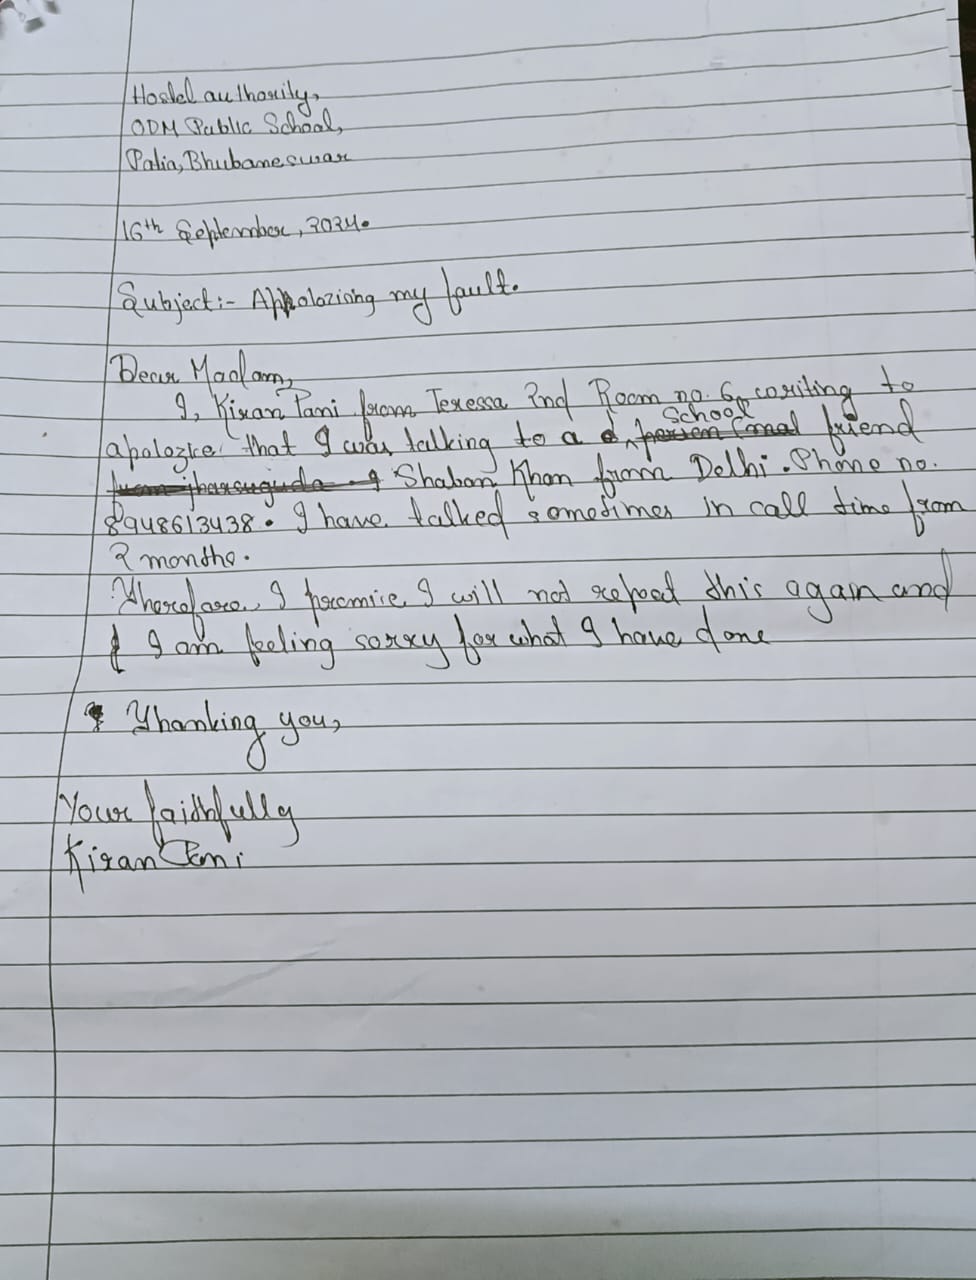 Hostel authority,
ODM Public School,
Patia, Bhubaneswar
16th September, 2024.
Subject:- Appolozising my fault.
Dear Madam,
I, Kiran Pani from Teressa 2nd Room no. 6, writing to
School
apologize that I was talking to a person (male) friend
from jharsuguda. I Shaban Khan from Delhi. Phone no.
8948613438. I have talked sometimes in call time from
2 months.
Therefore, I promise I will not repeat this again and
I am feeling sorry for what I have done
Thanking you,
Your faithfully
Kiran Pani